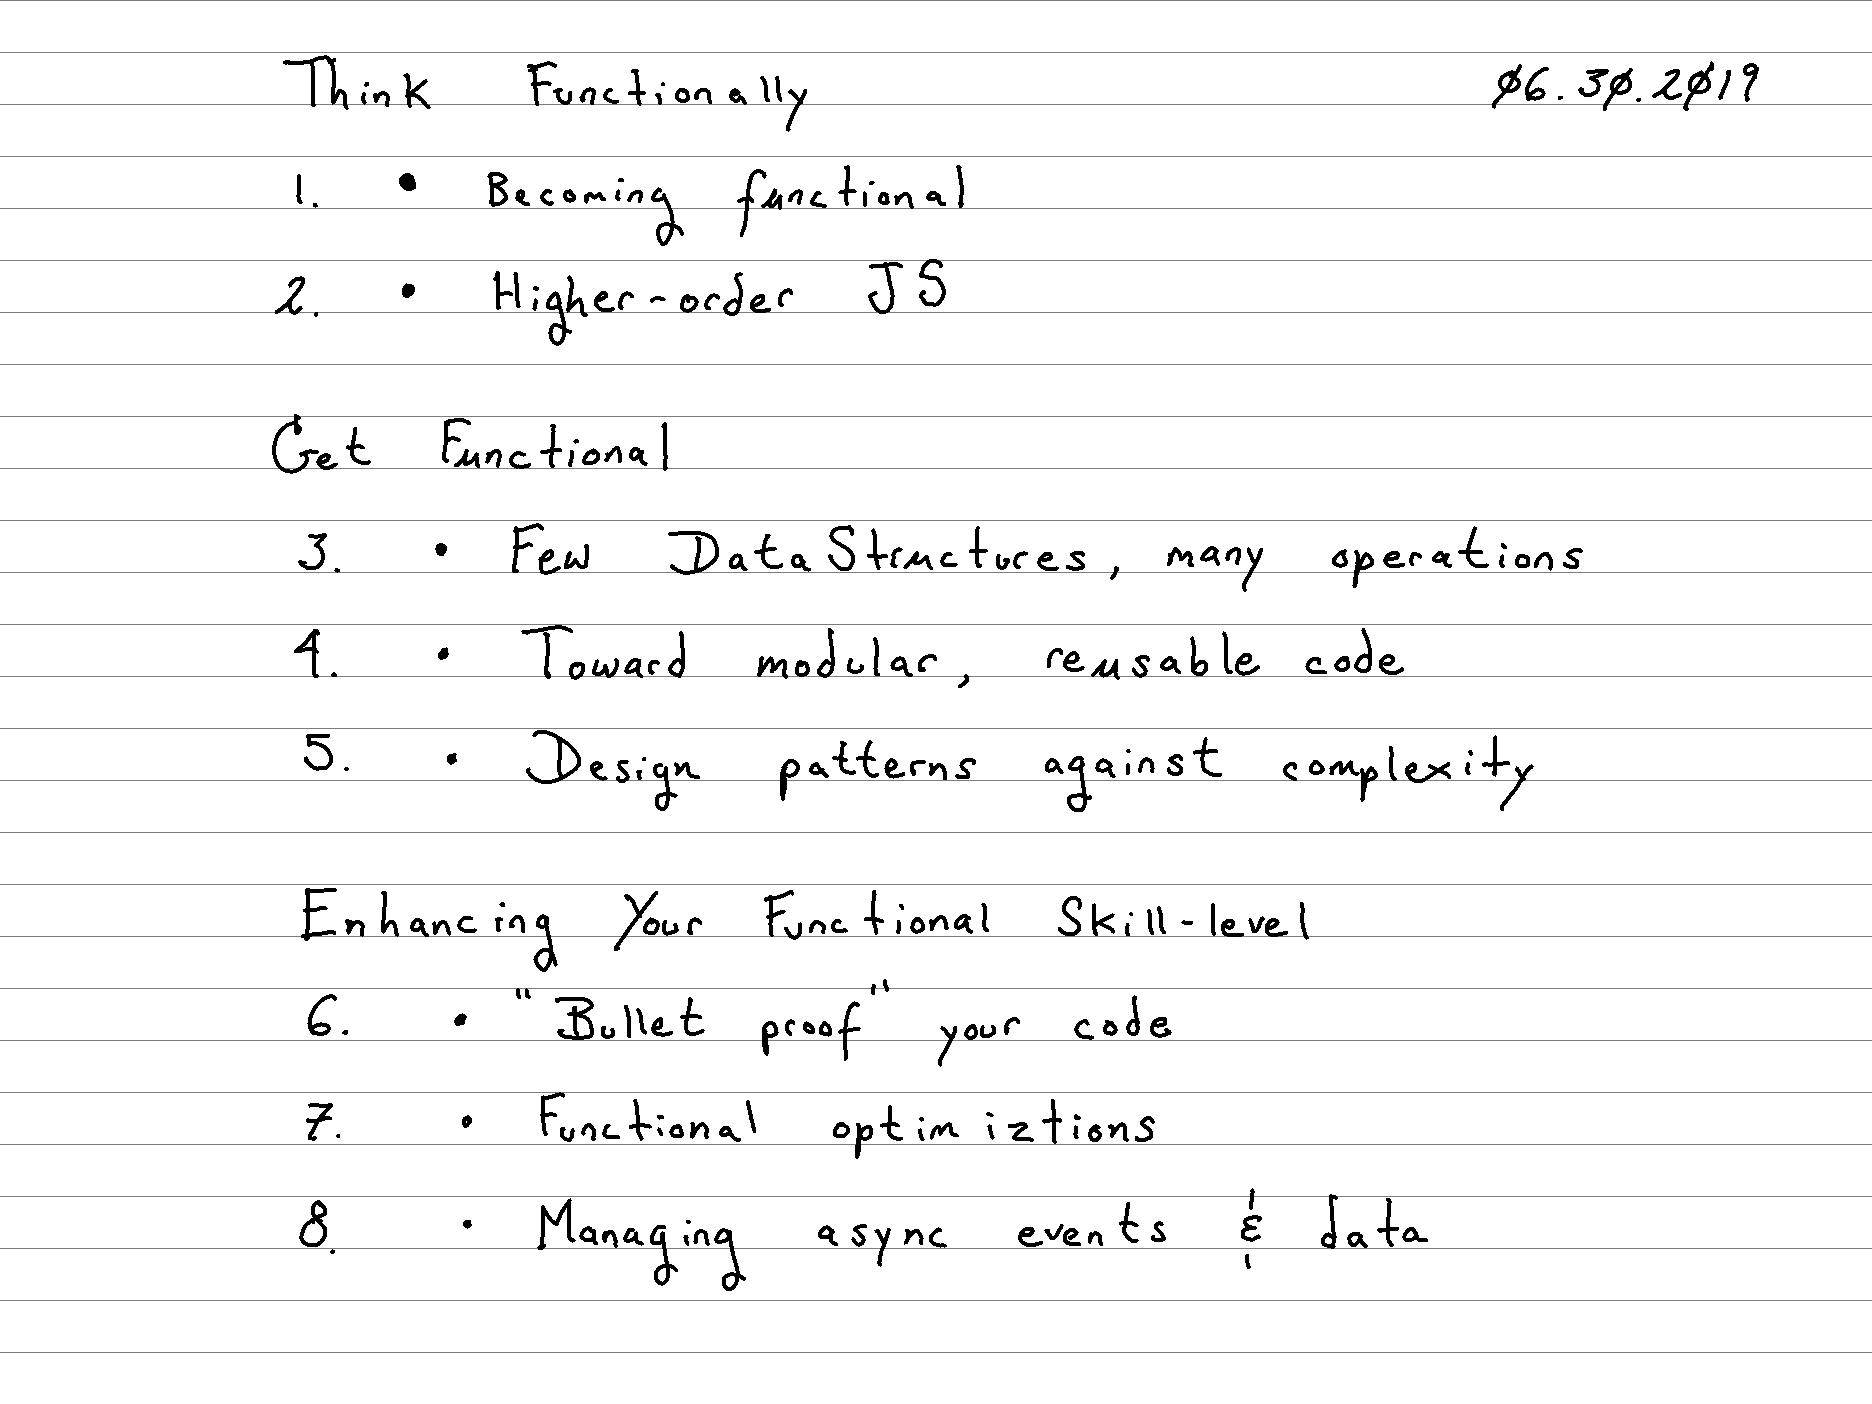 Think Functionally 06.30.2019
1. • Becoming functional
2. • Higher-order JS
Get Functional
3. • Few Data Structures, many operations
4. • Toward modular, reusable code
5. • Design patterns against complexity
Enhancing Your Functional Skill-level
6. • "Bullet proof" your code
7. • Functional optimiztions
8. • Managing async events & data